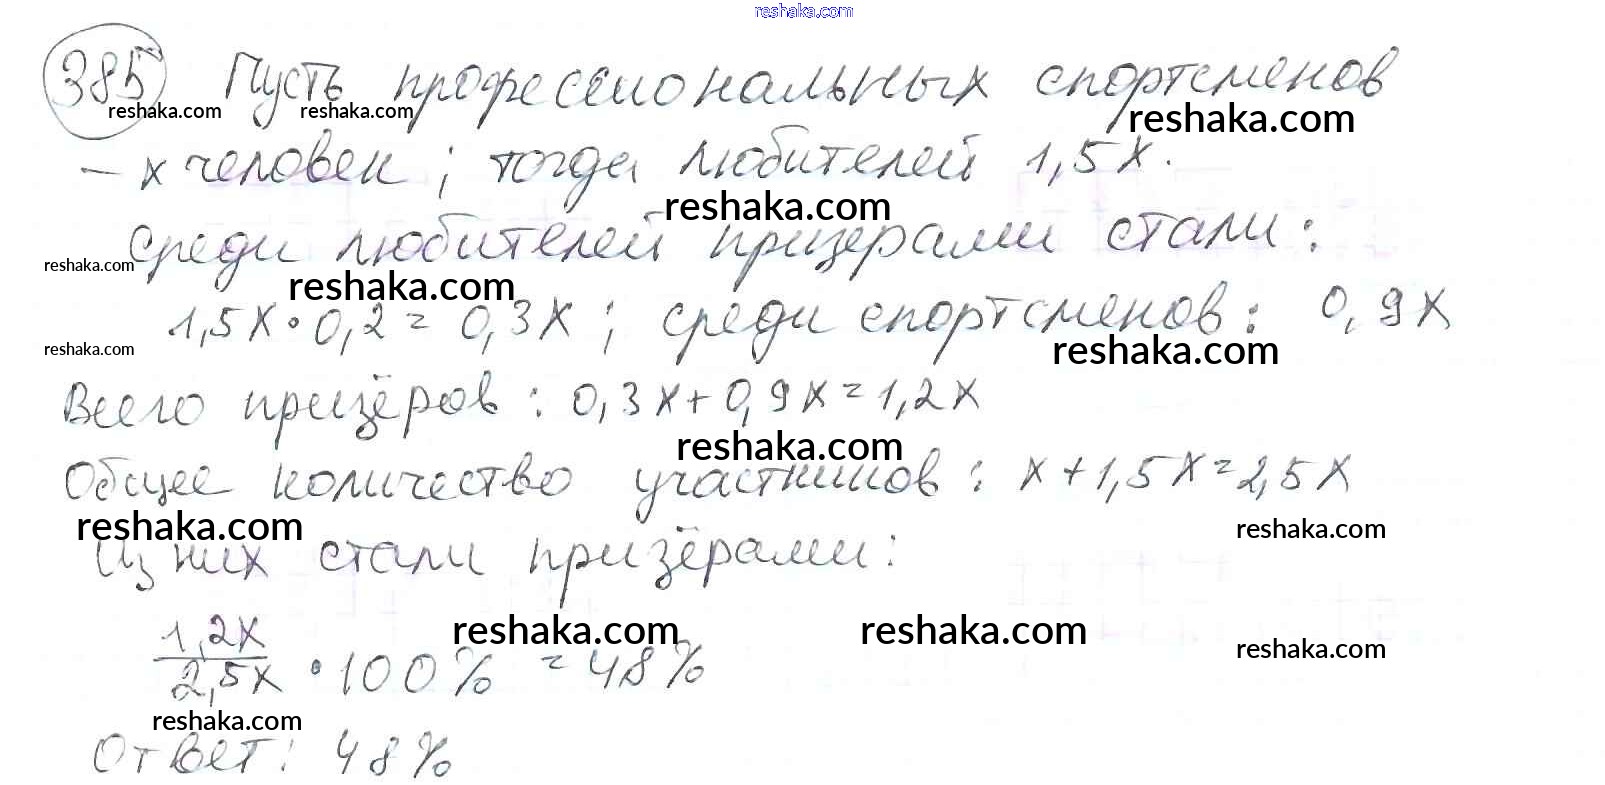 reshaka.com
385 Пусть профессиональных спортсменов
reshaka.com reshaka.com reshaka.com
— x человек; тогда любителей 1,5x.
reshaka.com
Среди любителей призерами стали:
reshaka.com reshaka.com
1,5x · 0,2 = 0,3x; среди спортсменов: 0,9x
reshaka.com reshaka.com
Всего призёров: 0,3x + 0,9x = 1,2x
reshaka.com
Общее количество участников: x + 1,5x = 2,5x
reshaka.com reshaka.com
Из них стали призёрами:
reshaka.com reshaka.com reshaka.com
1,2x
2,5x · 100% = 48%
reshaka.com
Ответ: 48%